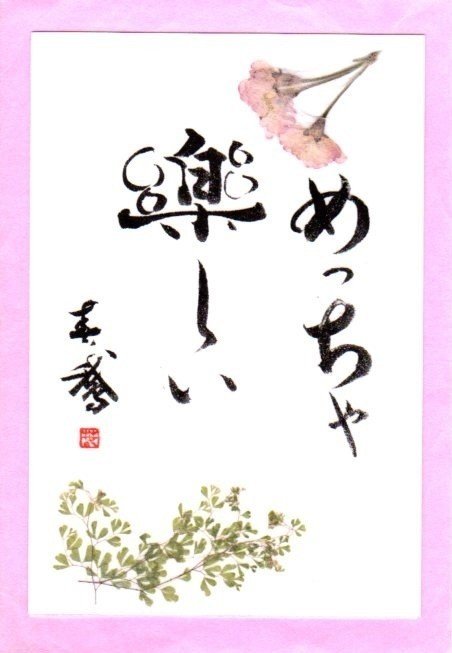 めっちゃ
樂しい